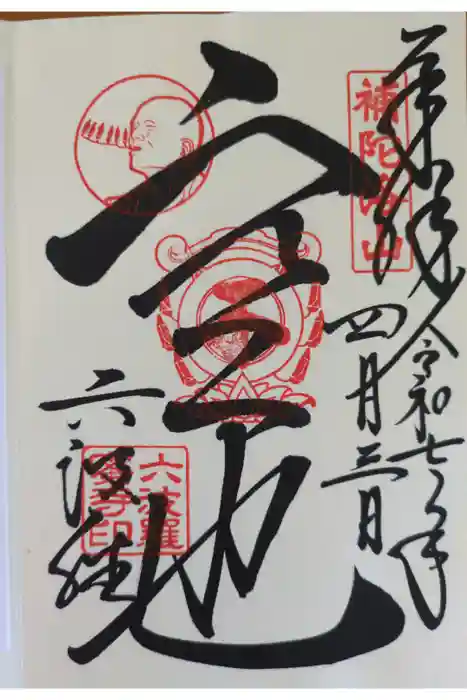 奉拝
令和七年
四月三日
補陀洛山
空也
六波羅
六波羅
蜜寺印